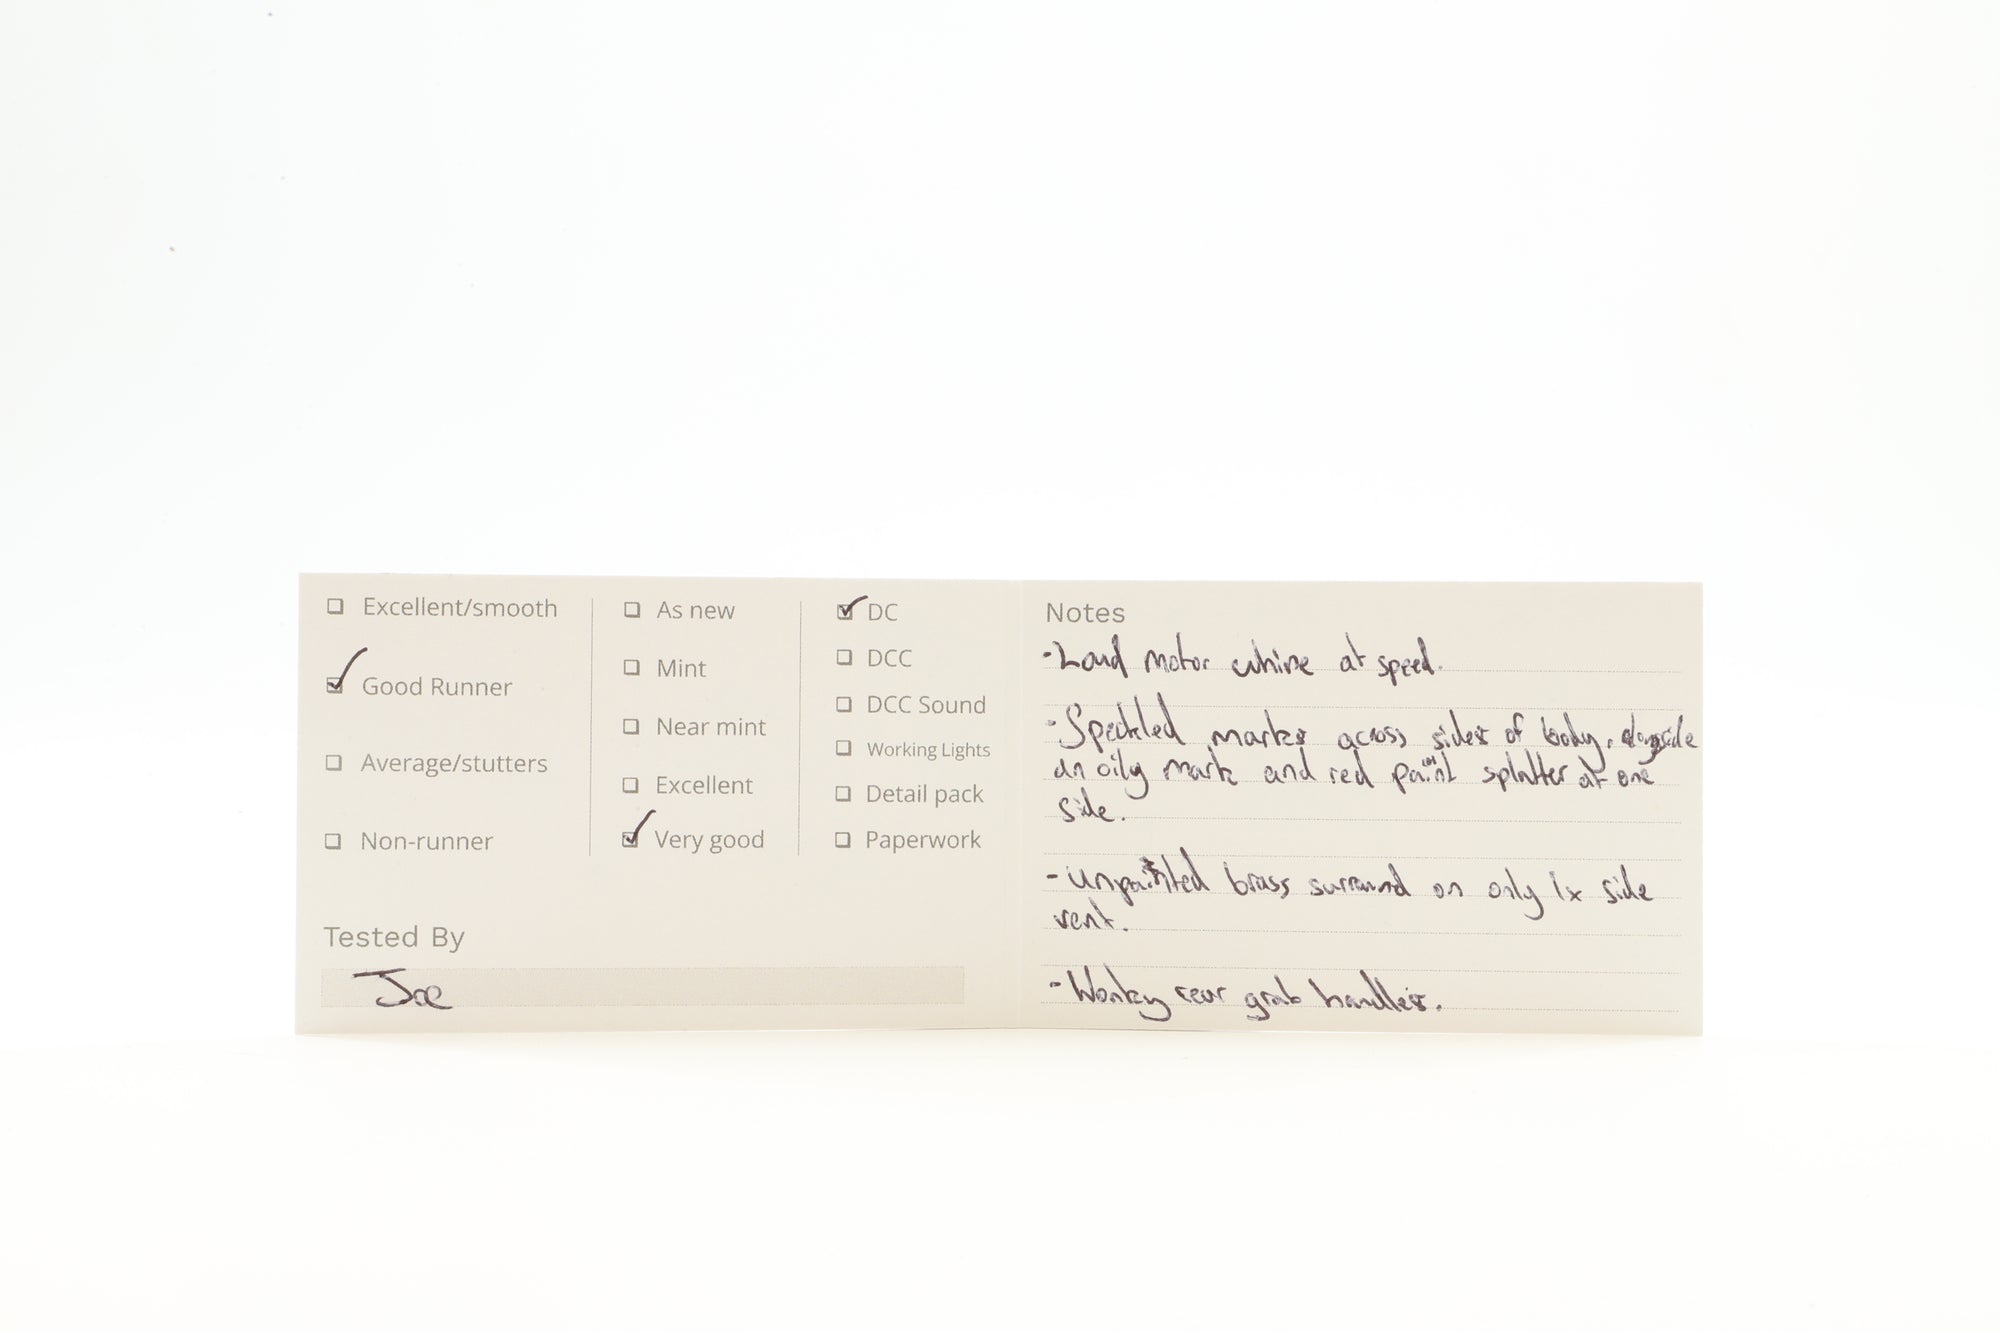 Excellent/smooth
Good Runner
Average/stutters
Non-runner
As new
Mint
Near mint
Excellent
Very good
DC
DCC
DCC Sound
Working Lights
Detail pack
Paperwork
Tested By
Joe
Notes
-Loud motor whine at speed.
-Speckled marks across sides of body, alongside
an oily mark and red paint splatter at one
side.
-Unpainted brass surround on only 1x side
vent.
-Wonky rear grab handles.